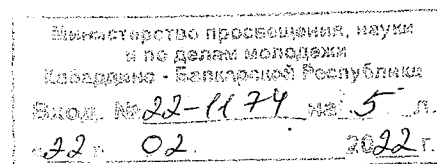 Министерство просвещения, науки
и по делам молодежи
Кабардино - Балкарской Республики
Вход. № 22-11 74 на 5 л.
«22» 02. 2022 г.